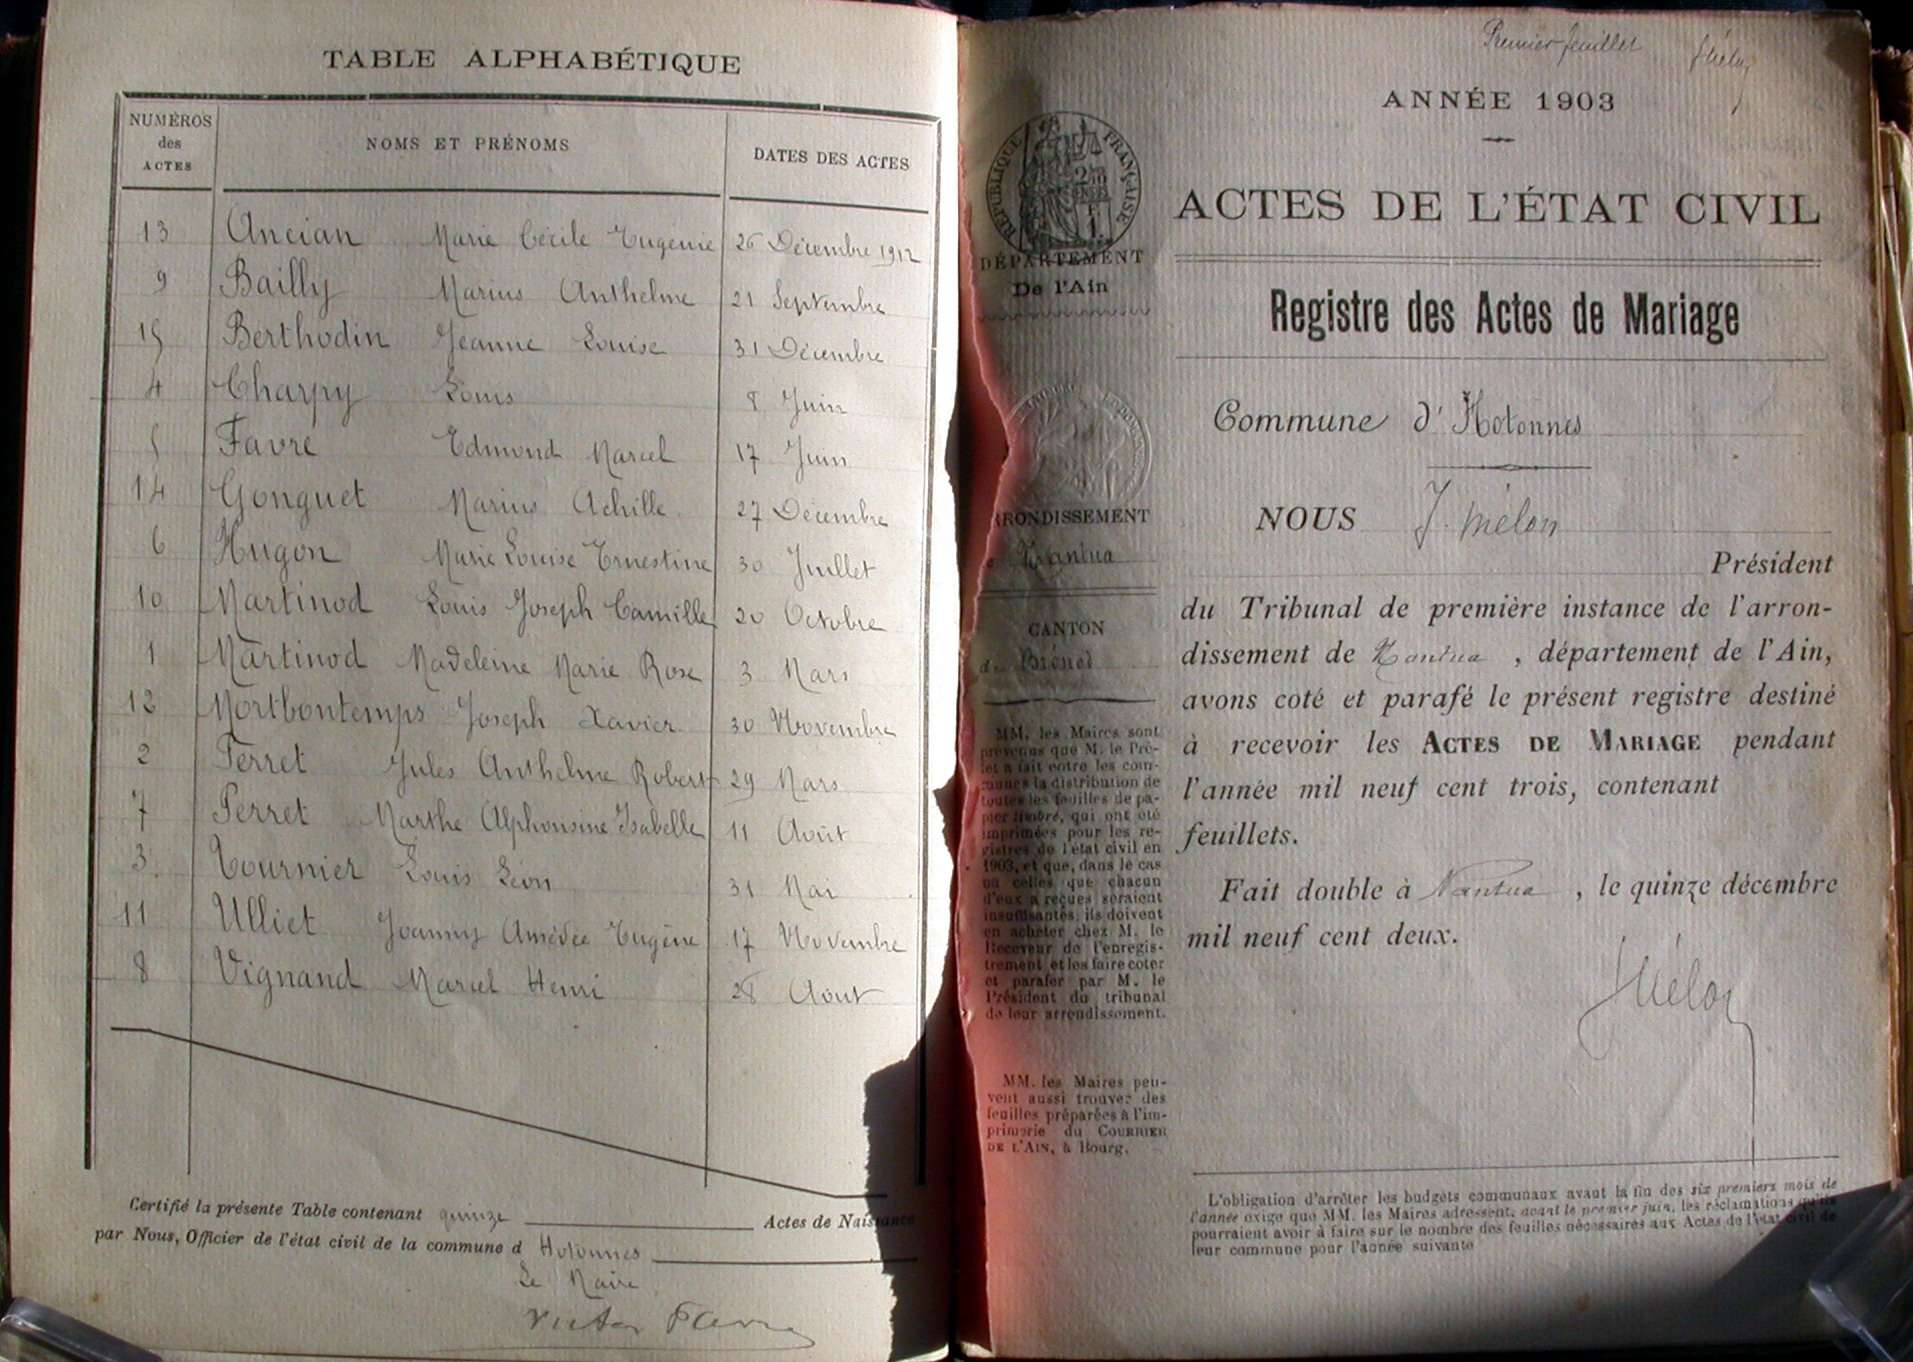 TABLE ALPHABÉTIQUE
NUMÉROS des ACTES NOMS ET PRÉNOMS DATES DES ACTES
13 Ancian Marie Cécile Eugénie 26 Décembre 1912
9 Bailly Marius Anthelme 21 Septembre
15 Berthodin Jeanne Louise 31 Décembre
4 Charpy Louis 8 Juin
5 Favre Edmond Marcel 17 Juin
14 Gonguet Marius Achille 27 Décembre
6 Hugon Marie Louise Ernestine 30 Juillet
10 Martinod Louis Joseph Camille 20 Octobre
1 Martinod Madeleine Marie Rose 3 Mars
12 Mortbontemps Joseph Xavier 30 Novembre
2 Perret Jules Anthelme Robert 29 Mars
7 Perret Marthe Alphonsine Isabelle 11 Août
3 Tournier Louis Léon 31 Mai
11 Ulliet Joanny Amédée Eugène 17 Novembre
8 Vignand Marcel Henri 28 Août
Certifié la présente Table contenant quinze Actes de Naissance
par Nous, Officier de l'état civil de la commune d Hotonnes
Le Maire
Victor Favre
Premier feuillet
ANNÉE 1903
RÉPUBLIQUE FRANÇAISE
ACTES DE L'ÉTAT CIVIL
DÉPARTEMENT
De l'Ain
Registre des Actes de Mariage
Commune d'Hotonnes
NOUS J. Mélon
RRONDISSEMENT
Nantua
Président
du Tribunal de première instance de l'arron-
CANTON
dissement de Nantua, département de l'Ain,
avons coté et parafé le présent registre destiné
à recevoir les ACTES DE MARIAGE pendant
l'année mil neuf cent trois, contenant
feuillets.
Fait double à Nantua, le quinze décembre
mil neuf cent deux.
JMélon
MM. les Maires sont
prévenus que M. le Pré-
fet a fait entre les com-
munes la distribution de
toutes les feuilles de pa-
pier timbré, qui ont été
imprimées pour les re-
gistres de l'état civil en
1903, et que, dans le cas
où celles que chacun
d'eux a reçues seraient
insuffisantes, ils doivent
en acheter chez M. le
Receveur de l'enregis-
trement et les faire coter
et parafer par M. le
Président du tribunal
de leur arrondissement.
MM. les Maires peu-
vent aussi trouver des
feuilles préparées à l'im-
primerie du COURRIER
DE L'AIN, à Bourg.
L'obligation d'arrêter les budgets communaux avant la fin des six premiers mois de
l'année exige que MM. les Maires adressent, avant le premier juin, les réclamations qu'ils
pourraient avoir à faire sur le nombre des feuilles nécessaires aux Actes de l'état civil de
leur commune pour l'année suivante